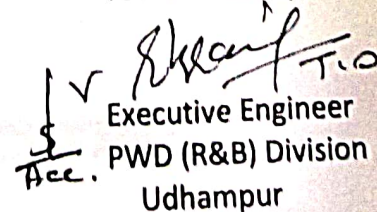 T.O
Executive Engineer
Acc. PWD (R&B) Division
Udhampur